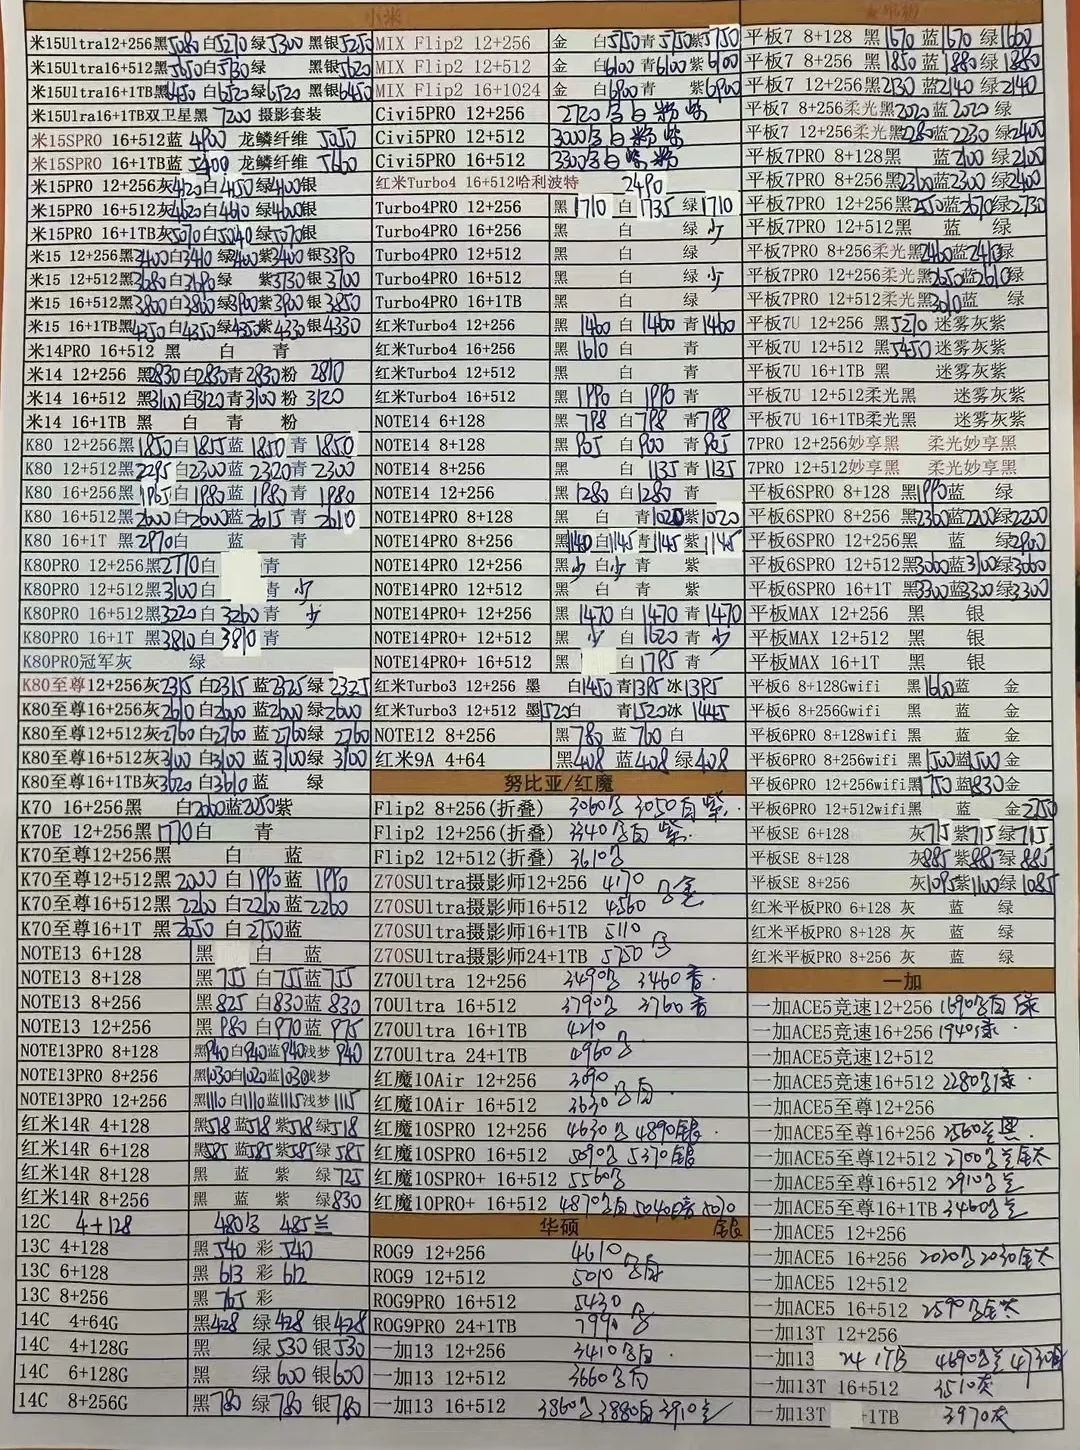 小米
米15Ultra12+256黑5080白5270绿5300 黑银5250
米15Ultra16+512黑5650白5730绿 黑银5620
米15Ultra16+1TB黑6450白6520绿6520 黑银6450
米15Ulra16+1TB双卫星黑 7200 摄影套装
米15SPRO 16+512蓝 4900 龙鳞纤维 5050
米15SPRO 16+1TB蓝 5400 龙鳞纤维 5600
米15PRO 12+256灰4120白4050绿4100银
米15PRO 16+512灰4620白4610 绿4600银
米15PRO 16+1TB灰5070白5040绿5070银
米15 12+256黑3400白3410 绿3400紫3400 银3390
米15 12+512黑3680白3690绿 紫3730银 3700
米15 16+512黑3800白3800绿3900紫3900 银3850
米15 16+1TB黑4350白4350绿4350紫4330 银4330
米14PRO 16+512 黑 白 青
米14 12+256 黑2830白2830青2830粉 2810
米14 16+512 黑3100白3120青3100粉 3120
米14 16+1TB 黑 白 青 粉
K80 12+256黑1850白1855蓝 1850 青 1850
K80 12+512黑2295白2300蓝 2320青 2300
K80 16+256黑1965白1980蓝 1980青 1980
K80 16+512黑2600白2600蓝 2615 青 2610
K80 16+1T 黑2970白 蓝 青
K80PRO 12+256黑2770白 青
K80PRO 12+512黑3100白 青 少
K80PRO 16+512黑3220白 3260 青 少
K80PRO 16+1T 黑3810白 3810 青
K80PRO冠军灰 绿
K80至尊12+256灰2315 白2315 蓝2325绿 2325
K80至尊16+256灰2610白2600 蓝2600绿 2600
K80至尊12+512灰2760白2760 蓝2760绿 2760
K80至尊16+512灰3100白3100 蓝3100绿 3100
K80至尊16+1TB灰3620 白3610 蓝 绿
K70 16+256黑 白2000蓝2050紫
K70E 12+256黑1770白 青
K70至尊12+256黑 白 蓝
K70至尊12+512黑2000 白1990蓝 1990
K70至尊16+512黑2260 白2260蓝 2260
K70至尊16+1T 黑2650 白2750蓝
NOTE13 6+128 黑 白 蓝
NOTE13 8+128 黑755 白755蓝755
NOTE13 8+256 黑825 白830蓝 830
NOTE13 12+256 黑980 白970蓝 975
NOTE13PRO 8+128 黑940白940蓝940浅梦 940
NOTE13PRO 8+256 黑1030白1020蓝1030浅梦
NOTE13PRO 12+256 黑1110白1110蓝1115浅梦 1115
红米14R 4+128 黑518蓝518紫518绿518
红米14R 6+128 黑585蓝585紫585绿585
红米14R 8+128 黑 蓝 紫 绿725
红米14R 8+256 黑 蓝 紫 绿830
12C 4+128 480黑 485兰
13C 4+128 黑540 彩 540
13C 6+128 黑 613 彩 612
13C 8+256 黑 765 彩
14C 4+64G 黑428 绿428 银428
14C 4+128G 黑 绿530银530
14C 6+128G 黑 绿600银600
14C 8+256G 黑780 绿780 银780
MIX Flip2 12+256 金 白5750青5750紫5750
MIX Flip2 12+512 金 白6100青6100紫6100
MIX Flip2 16+1024 金 白6900青 紫6900
Civi5PRO 12+256 2720黑白粉紫
Civi5PRO 12+512 3000黑白粉紫
Civi5PRO 16+512 3300黑白紫粉
红米Turbo4 16+512哈利波特 2490
Turbo4PRO 12+256 黑1710 白1735 绿1710
Turbo4PRO 16+256 黑 白 绿少
Turbo4PRO 12+512 黑 白 绿
Turbo4PRO 16+512 黑 白 绿少
Turbo4PRO 16+1TB 黑 白 绿
红米Turbo4 12+256 黑1460 白1460青1460
红米Turbo4 16+256 黑1610 白 青
红米Turbo4 12+512 黑 白 青
红米Turbo4 16+512 黑1990 白1990青
NOTE14 6+128 黑798 白798 青798
NOTE14 8+128 黑905 白900 青905
NOTE14 8+256 黑 白1135青1135
NOTE14 12+256 黑1280 白1280 青
NOTE14PRO 8+128 黑 白 青1020紫1020
NOTE14PRO 8+256 黑1140白1145青1145紫1145
NOTE14PRO 12+256 黑少 白少 青 紫
NOTE14PRO 12+512 黑 白 青 紫
NOTE14PRO+ 12+256 黑1470 白1470 青1470
NOTE14PRO+ 12+512 黑 少 白1620 青少
NOTE14PRO+ 16+512 黑 白1795青
红米Turbo3 12+256 墨 白1450青1395冰1395
红米Turbo3 12+512 墨1520白 青1520冰 1445
NOTE12 8+256 黑780 蓝 760 白
红米9A 4+64 黑408 蓝408 绿408
努比亚/红魔
Flip2 8+256(折叠) 3060黑 3050白紫
Flip2 12+256(折叠) 3340黑白紫
Flip2 12+512(折叠) 3610黑
Z70SUltra摄影师12+256 4170
Z70SUltra摄影师16+512 4560 黑金
Z70SUltra摄影师16+1TB 5110
Z70SUltra摄影师24+1TB 5750黑
Z70Ultra 12+256 3490黑 3460青
70Ultra 16+512 3790黑 3760青
Z70Ultra 16+1TB 4210
Z70Ultra 24+1TB 4960黑
红魔10Air 12+256 3090
红魔10Air 16+512 3630黑白
红魔10SPRO 12+256 4630黑 4890银
红魔10SPRO 16+512 5090黑 5370银
红魔10SPRO+ 16+512 5560黑
红魔10PRO+ 16+512 4870黑白 5040 5070银
华硕
ROG9 12+256 4610
ROG9 12+512 5010黑白
ROG9PRO 16+512 5430
ROG9PRO 24+1TB 7990黑
一加13 12+256 3410黑白
一加13 12+512 3660黑白
一加13 16+512 3860黑3880白3910兰
平板7 8+128 黑 1670 蓝1670 绿1660
平板7 8+256 黑 1850 蓝1880绿1880
平板7 12+256黑2130 蓝2140 绿2140
平板7 8+256柔光黑2020蓝2020 绿
平板7 12+256柔光黑2280蓝2230 绿2400
平板7PRO 8+128黑 蓝2100 绿2100
平板7PRO 8+256黑2360蓝2300 绿2400
平板7PRO 12+256黑2550蓝2670绿2730
平板7PRO 12+512黑 蓝 绿
平板7PRO 8+256柔光黑2460蓝2410绿
平板7PRO 12+256柔光黑2650蓝2610绿
平板7PRO 12+512柔光黑3010蓝 绿
平板7U 12+256 黑5270 迷雾灰紫
平板7U 12+512 黑5450 迷雾灰紫
平板7U 16+1TB 黑 迷雾灰紫
平板7U 12+512柔光黑 迷雾灰紫
平板7U 16+1TB柔光黑 迷雾灰紫
7PRO 12+256妙享黑 柔光妙享黑
7PRO 12+512妙享黑 柔光妙享黑
平板6SPRO 8+128 黑1990蓝 绿
平板6SPRO 8+256 黑2360蓝2200绿2200
平板6SPRO 12+256黑 蓝 绿2900
平板6SPRO 12+512黑3060蓝3100绿3060
平板6SPRO 16+1T 黑3300蓝3300绿3300
平板MAX 12+256 黑 银
平板MAX 12+512 黑 银
平板MAX 16+1T 黑 银
平板6 8+128Gwifi 黑1600蓝 金
平板6 8+256Gwifi 黑 蓝 金
平板6PRO 8+128wifi 黑 蓝 金
平板6PRO 8+256wifi 黑1500蓝1500 金
平板6PRO 12+256wifi黑1750 蓝1830金
平板6PRO 12+512wifi黑 蓝 金2250
平板SE 6+128 灰715紫715绿715
平板SE 8+128 灰885紫885绿885
平板SE 8+256 灰1095紫1100绿1085
红米平板PRO 6+128 灰 蓝 绿
红米平板PRO 8+128 灰 蓝 绿
红米平板PRO 8+256 灰 蓝 绿
一加
一加ACE5竞速12+256 1690黑白 绿
一加ACE5竞速16+256 1940绿
一加ACE5竞速12+512
一加ACE5竞速16+512 2280黑绿
一加ACE5至尊12+256
一加ACE5至尊16+256 2560兰黑
一加ACE5至尊12+512 2700黑兰钛
一加ACE5至尊16+512 2910黑兰
一加ACE5至尊16+1TB 3460黑兰
一加ACE5 12+256
一加ACE5 16+256 2020黑2030钛
一加ACE5 12+512
一加ACE5 16+512 2590黑钛
一加13T 12+256
一加13 24 1TB 4690黑兰 4730白
一加13T 16+512 3510灰
一加13T +1TB 3970灰